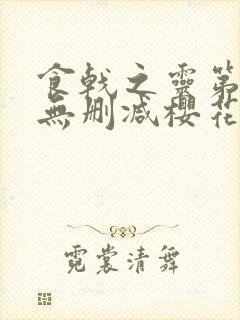 食戟之靈第
無删减櫻花
霓裳清舞